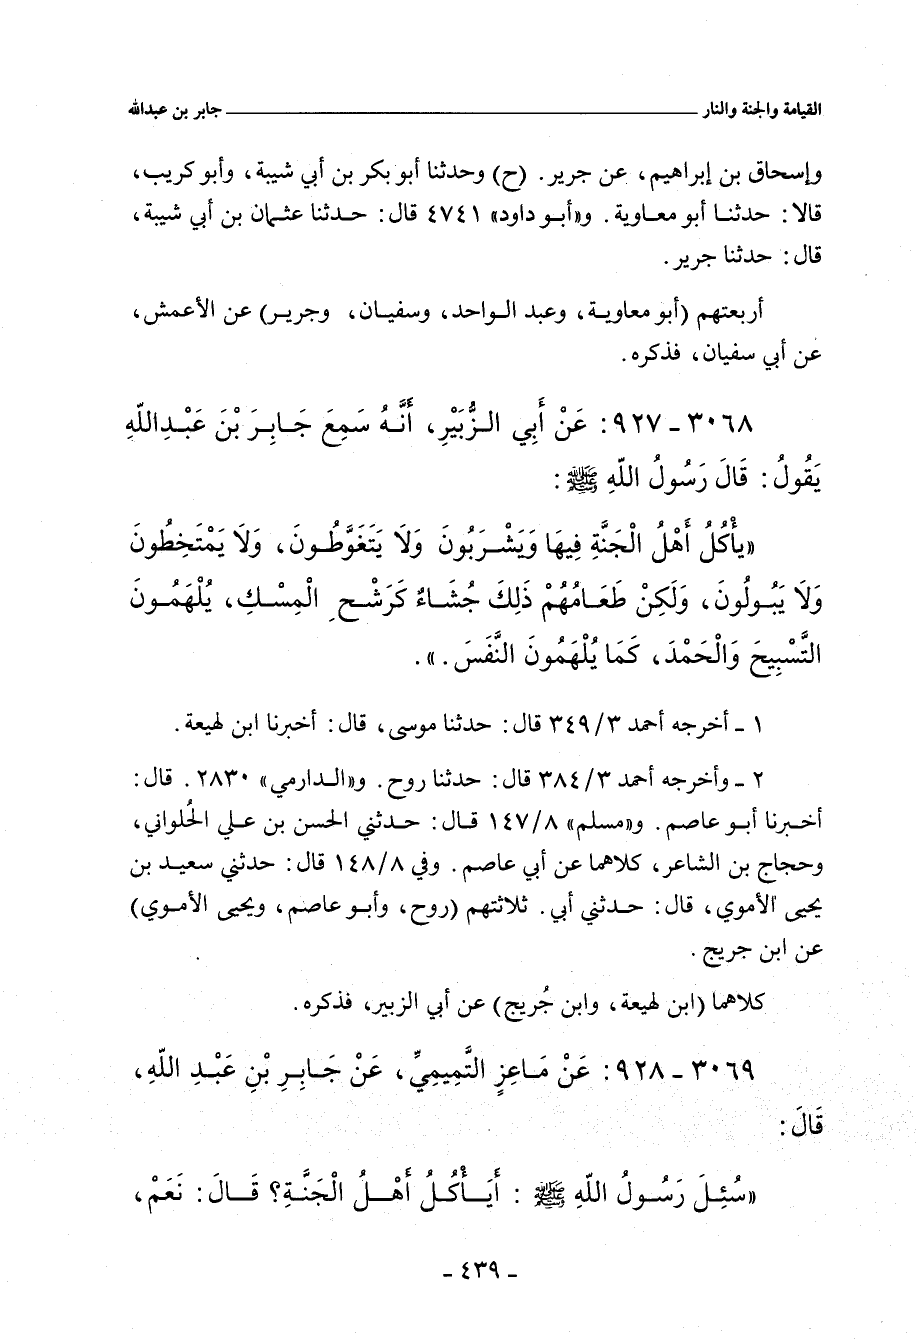 القيامة والجنة والنار ــــــــــــــــــــ جابر بن عبدالله
وإسحاق بن إبراهيم، عن جرير. (ح) وحدثنا أبو بكر بن أبي شيبة، وأبو كريب،
قالا: حدثنا أبو معاوية. و«أبو داود» ٤٧٤١ قال: حدثنا عثمان بن أبي شيبة،
قال: حدثنا جرير.
أربعتهم (أبو معاوية، وعبد الواحد، وسفيان، وجرير) عن الأعمش،
عن أبي سفيان، فذكره.
٣٠٦٨ - ٩٢٧: عَنْ أَبِي الزُّبَيْرِ، أَنَّهُ سَمِعَ جَابِرَ بْنَ عَبْدِاللّهِ
يَقُولُ: قَالَ رَسُولُ اللّهِ ﷺ:
«يأْكُلُ أَهْلُ الْجَنَّةِ فِيهَا وَيَشْرَبُونَ وَلَا يَتَغَوَّطُونَ، وَلَا يَمْتَخِطُونَ
وَلَا يَبُولُونَ، وَلَكِنْ طَعَامُهُمْ ذَلِكَ جُشَاءٌ كَرَشْحِ الْمِسْكِ، يُلْهَمُونَ
التَّسْبِيحَ وَالْحَمْدَ، كَمَا يُلْهَمُونَ النَّفَسَ.».
١ - أخرجه أحمد ٣٤٩/٣ قال: حدثنا موسى، قال: أخبرنا ابن لهيعة.
٢ - وأخرجه أحمد ٣٨٤/٣ قال: حدثنا روح. و«الدارمي» ٢٨٣٠. قال:
أخبرنا أبو عاصم. و«مسلم» ١٤٧/٨ قال: حدثني الحسن بن علي الحُلواني،
وحجاج بن الشاعر، كلاهما عن أبي عاصم. وفي ١٤٨/٨ قال: حدثني سعيد بن
يحيى الأموي، قال: حدثني أبي. ثلاثتهم (روح، وأبو عاصم، ويحيى الأموي)
عن ابن جريج.
كلاهما (ابن لهيعة، وابن جُريج) عن أبي الزبير، فذكره.
٣٠٦٩ - ٩٢٨: عَنْ مَاعِزٍ التَّمِيمِيِّ، عَنْ جَابِرِ بْنِ عَبْدِ اللّهِ،
قَالَ:
«سُئِلَ رَسُولُ اللّهِ ﷺ: أَيَأْكُلُ أَهْلُ الْجَنَّةِ؟ قَالَ: نَعَمْ،
- ٤٣٩ -